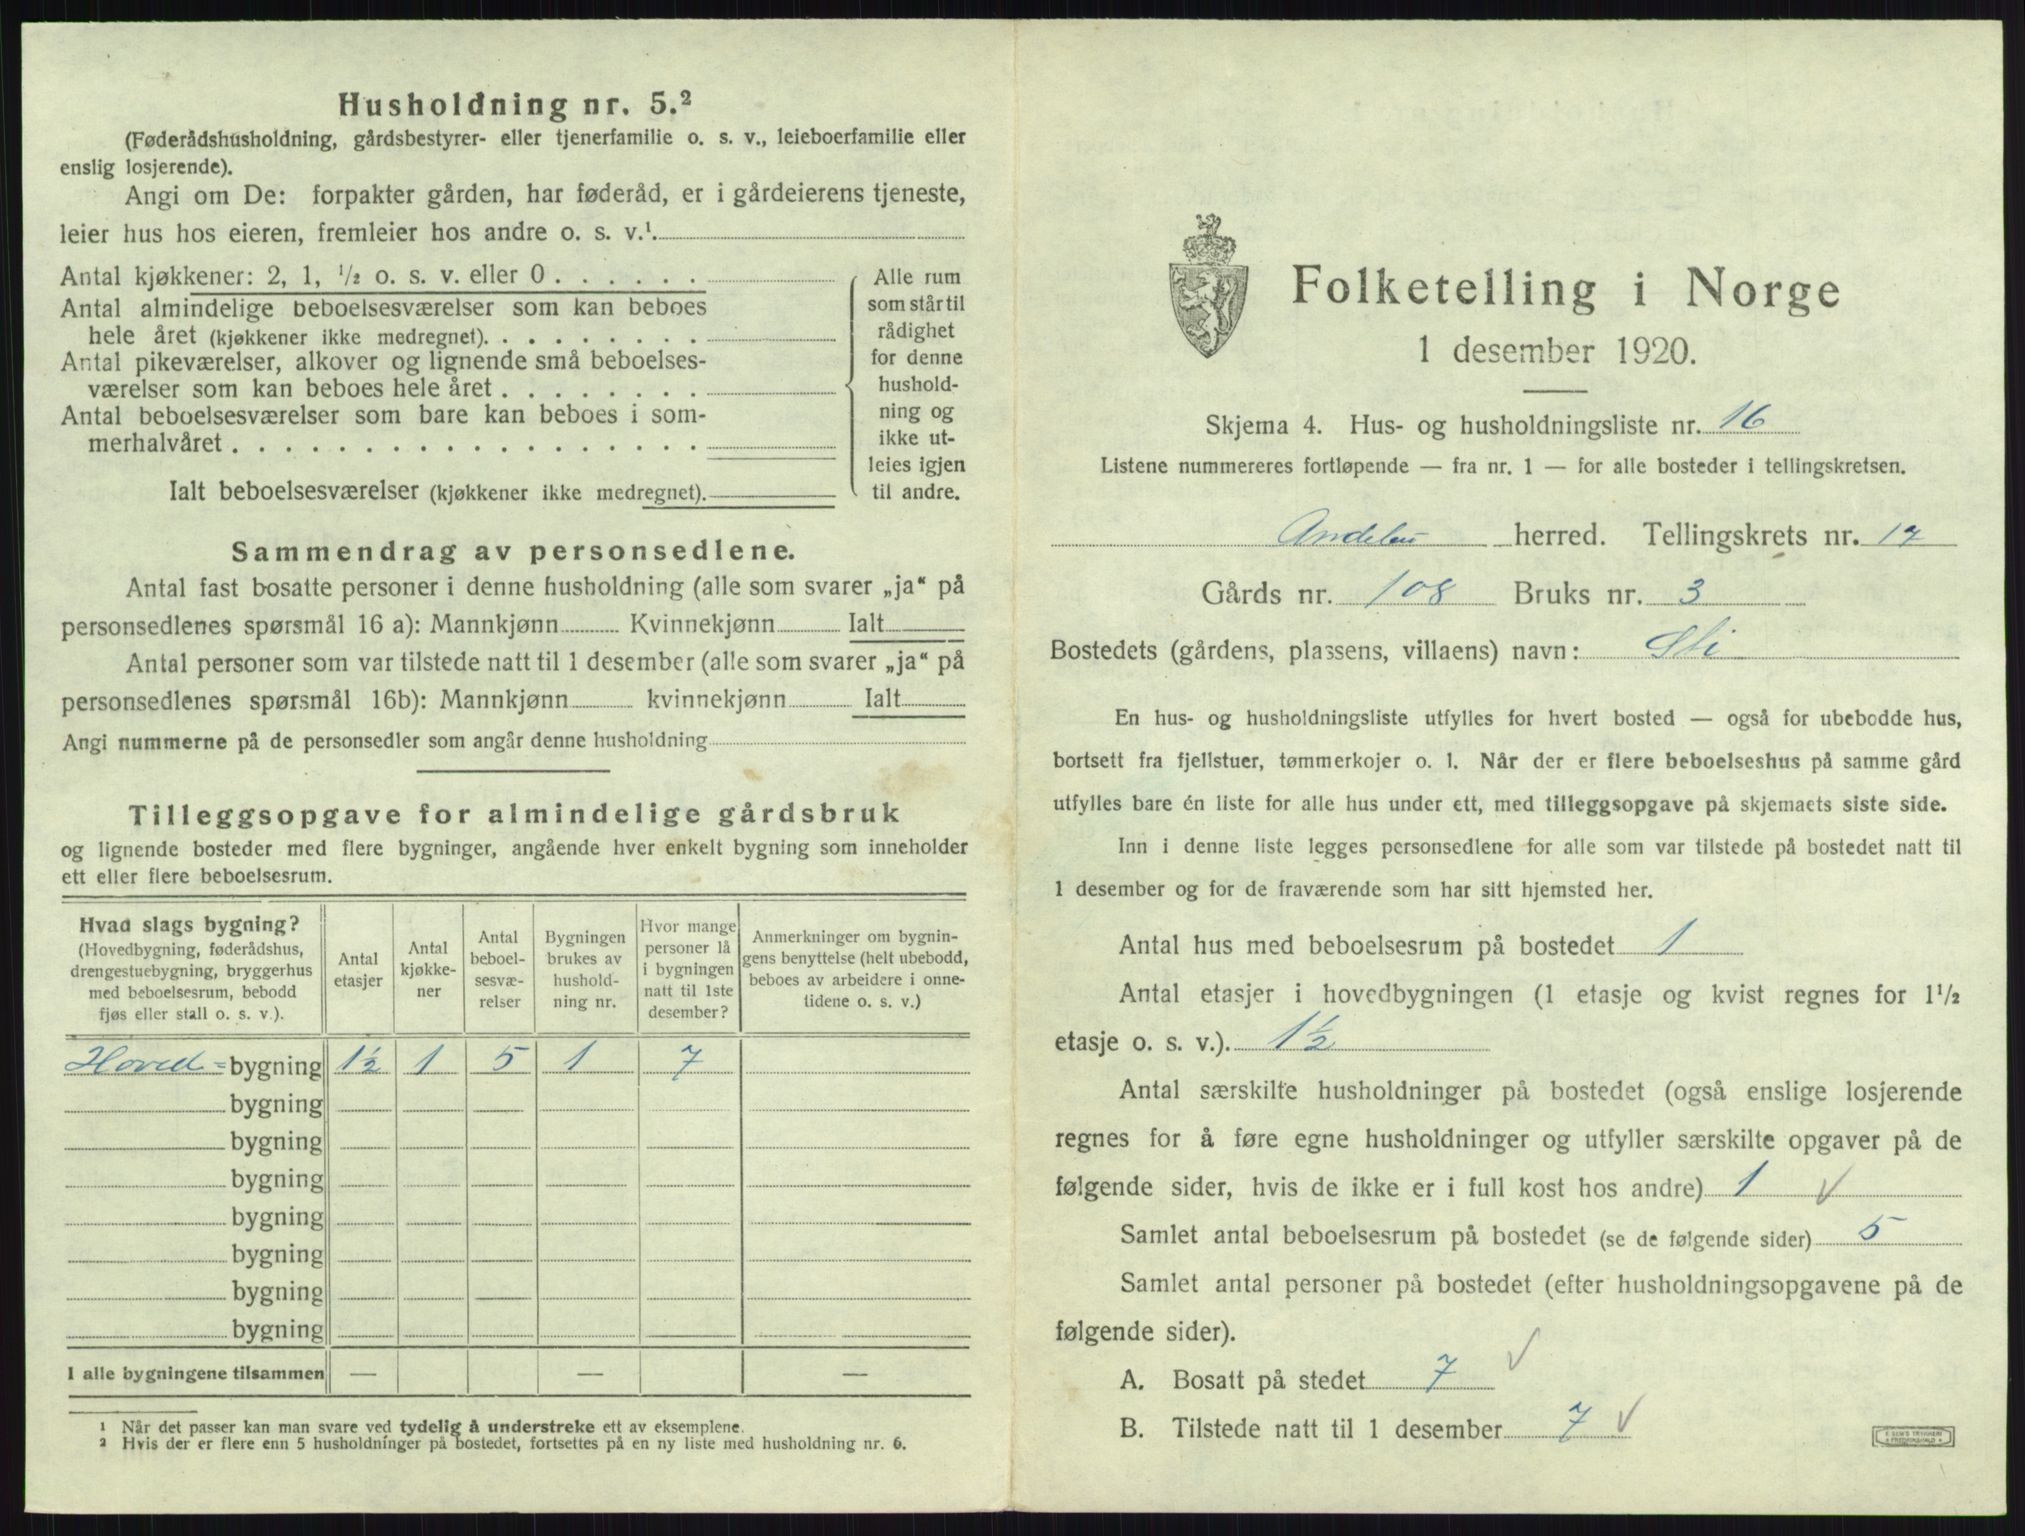 Husholdning nr. 5.²
(Føderådshusholdning, gårdsbestyrer- eller tjenerfamilie o. s. v., leieboerfamilie eller
enslig losjerende).
Angi om De: forpakter gården, har føderåd, er i gårdeierens tjeneste,
leier hus hos eieren, fremleier hos andre o. s. v.¹.
Antal kjøkkener: 2, 1, ½ o. s. v. eller 0 . . . . . .
Antal almindelige beboelsesværelser som kan beboes
hele året (kjøkkener ikke medregnet). . . . . . . . .
Antal pikeværelser, alkover og lignende små beboelses-
værelser som kan beboes hele året . . . . . . . .
Antal beboelsesværelser som bare kan beboes i som-
merhalvåret . . . . . . . . . . . . . . . . . .
Ialt beboelsesværelser (kjøkkener ikke medregnet).
Alle rum
som står til
rådighet
for denne
hushold-
ning og
ikke ut-
leies igjen
til andre.
Sammendrag av personsedlene.
Antal fast bosatte personer i denne husholdning (alle som svarer „ja“ på
personsedlenes spørsmål 16 a): Mannkjønn Kvinnekjønn Ialt
Antal personer som var tilstede natt til 1 desember (alle som svarer „ja“ på
personsedlenes spørsmål 16b): Mannkjønn kvinnekjønn Ialt
Angi nummerne på de personsedler som angår denne husholdning
Tilleggsopgave for almindelige gårdsbruk
og lignende bosteder med flere bygninger, angående hver enkelt bygning som inneholder
ett eller flere beboelsesrum.
Hvad slags bygning?
(Hovedbygning, føderådshus,
drengestuebygning, bryggerhus
med beboelsesrum, bebodd
fjøs eller stall o. s. v.).
Antal
etasjer
Antal
kjøkke-
ner
Antal
beboel-
sesvæ-
relser
Bygningen
brukes av
hushold-
ning nr.
Hvor mange
personer lå
i bygningen
natt til 1ste
desember?
Anmerkninger om bygnin-
gens benyttelse (helt ubebodd,
beboes av arbeidere i onne-
tidene o. s. v.)
Hoved=bygning 1½ 1 5 1 7
bygning
bygning
bygning
bygning
bygning
bygning
bygning
I alle bygningene tilsammen — — —
¹ Når det passer kan man svare ved tydelig å understreke ett av eksemplene.
² Hvis der er flere enn 5 husholdninger på bostedet, fortsettes på en ny liste med husholdning nr. 6.
Folketelling i Norge
1 desember 1920.
Skjema 4. Hus- og husholdningsliste nr. 16
Listene nummereres fortløpende — fra nr. 1 — for alle bosteder i tellingskretsen.
Andebu herred. Tellingskrets nr. 17
Gårds nr. 108 Bruks nr. 3
Bostedets (gårdens, plassens, villaens) navn: Sti
En hus- og husholdningsliste utfylles for hvert bosted — også for ubebodde hus,
bortsett fra fjellstuer, tømmerkojer o. l. Når der er flere beboelseshus på samme gård
utfylles bare én liste for alle hus under ett, med tilleggsopgave på skjemaets siste side.
Inn i denne liste legges personsedlene for alle som var tilstede på bostedet natt til
1 desember og for de fraværende som har sitt hjemsted her.
Antal hus med beboelsesrum på bostedet 1
Antal etasjer i hovedbygningen (1 etasje og kvist regnes for 1½
etasje o. s. v.). 1½
Antal særskilte husholdninger på bostedet (også enslige losjerende
regnes for å føre egne husholdninger og utfyller særskilte opgaver på de
følgende sider, hvis de ikke er i full kost hos andre) 1 √
Samlet antal beboelsesrum på bostedet (se de følgende sider) 5
Samlet antal personer på bostedet (efter husholdningsopgavene på de
følgende sider).
A. Bosatt på stedet 7 √
B. Tilstede natt til 1 desember 7 √